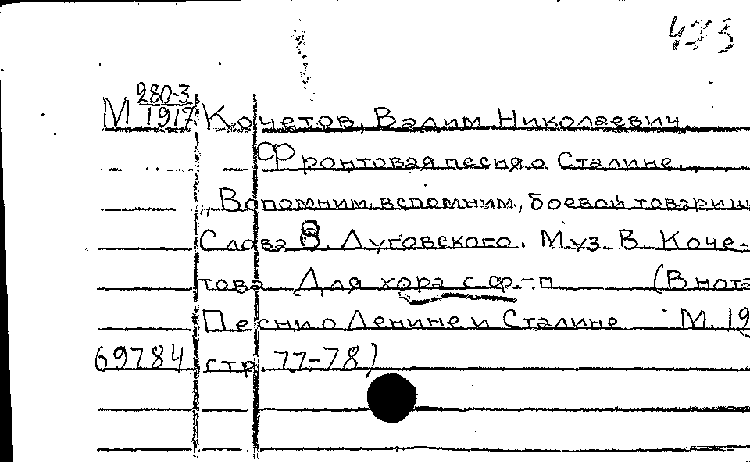 473
280-3
М 1917 Кочетов, Вадим Николаевич.
Фронтовая песня о Сталине.
„Вспомним, вспомним, боевой товарищ
Слова В. Луговского. Муз. В. Коче-
това. Для хора с ф.-п. (В нота
Песни о Ленине и Сталине М. 19
69784 стр. 77-78)